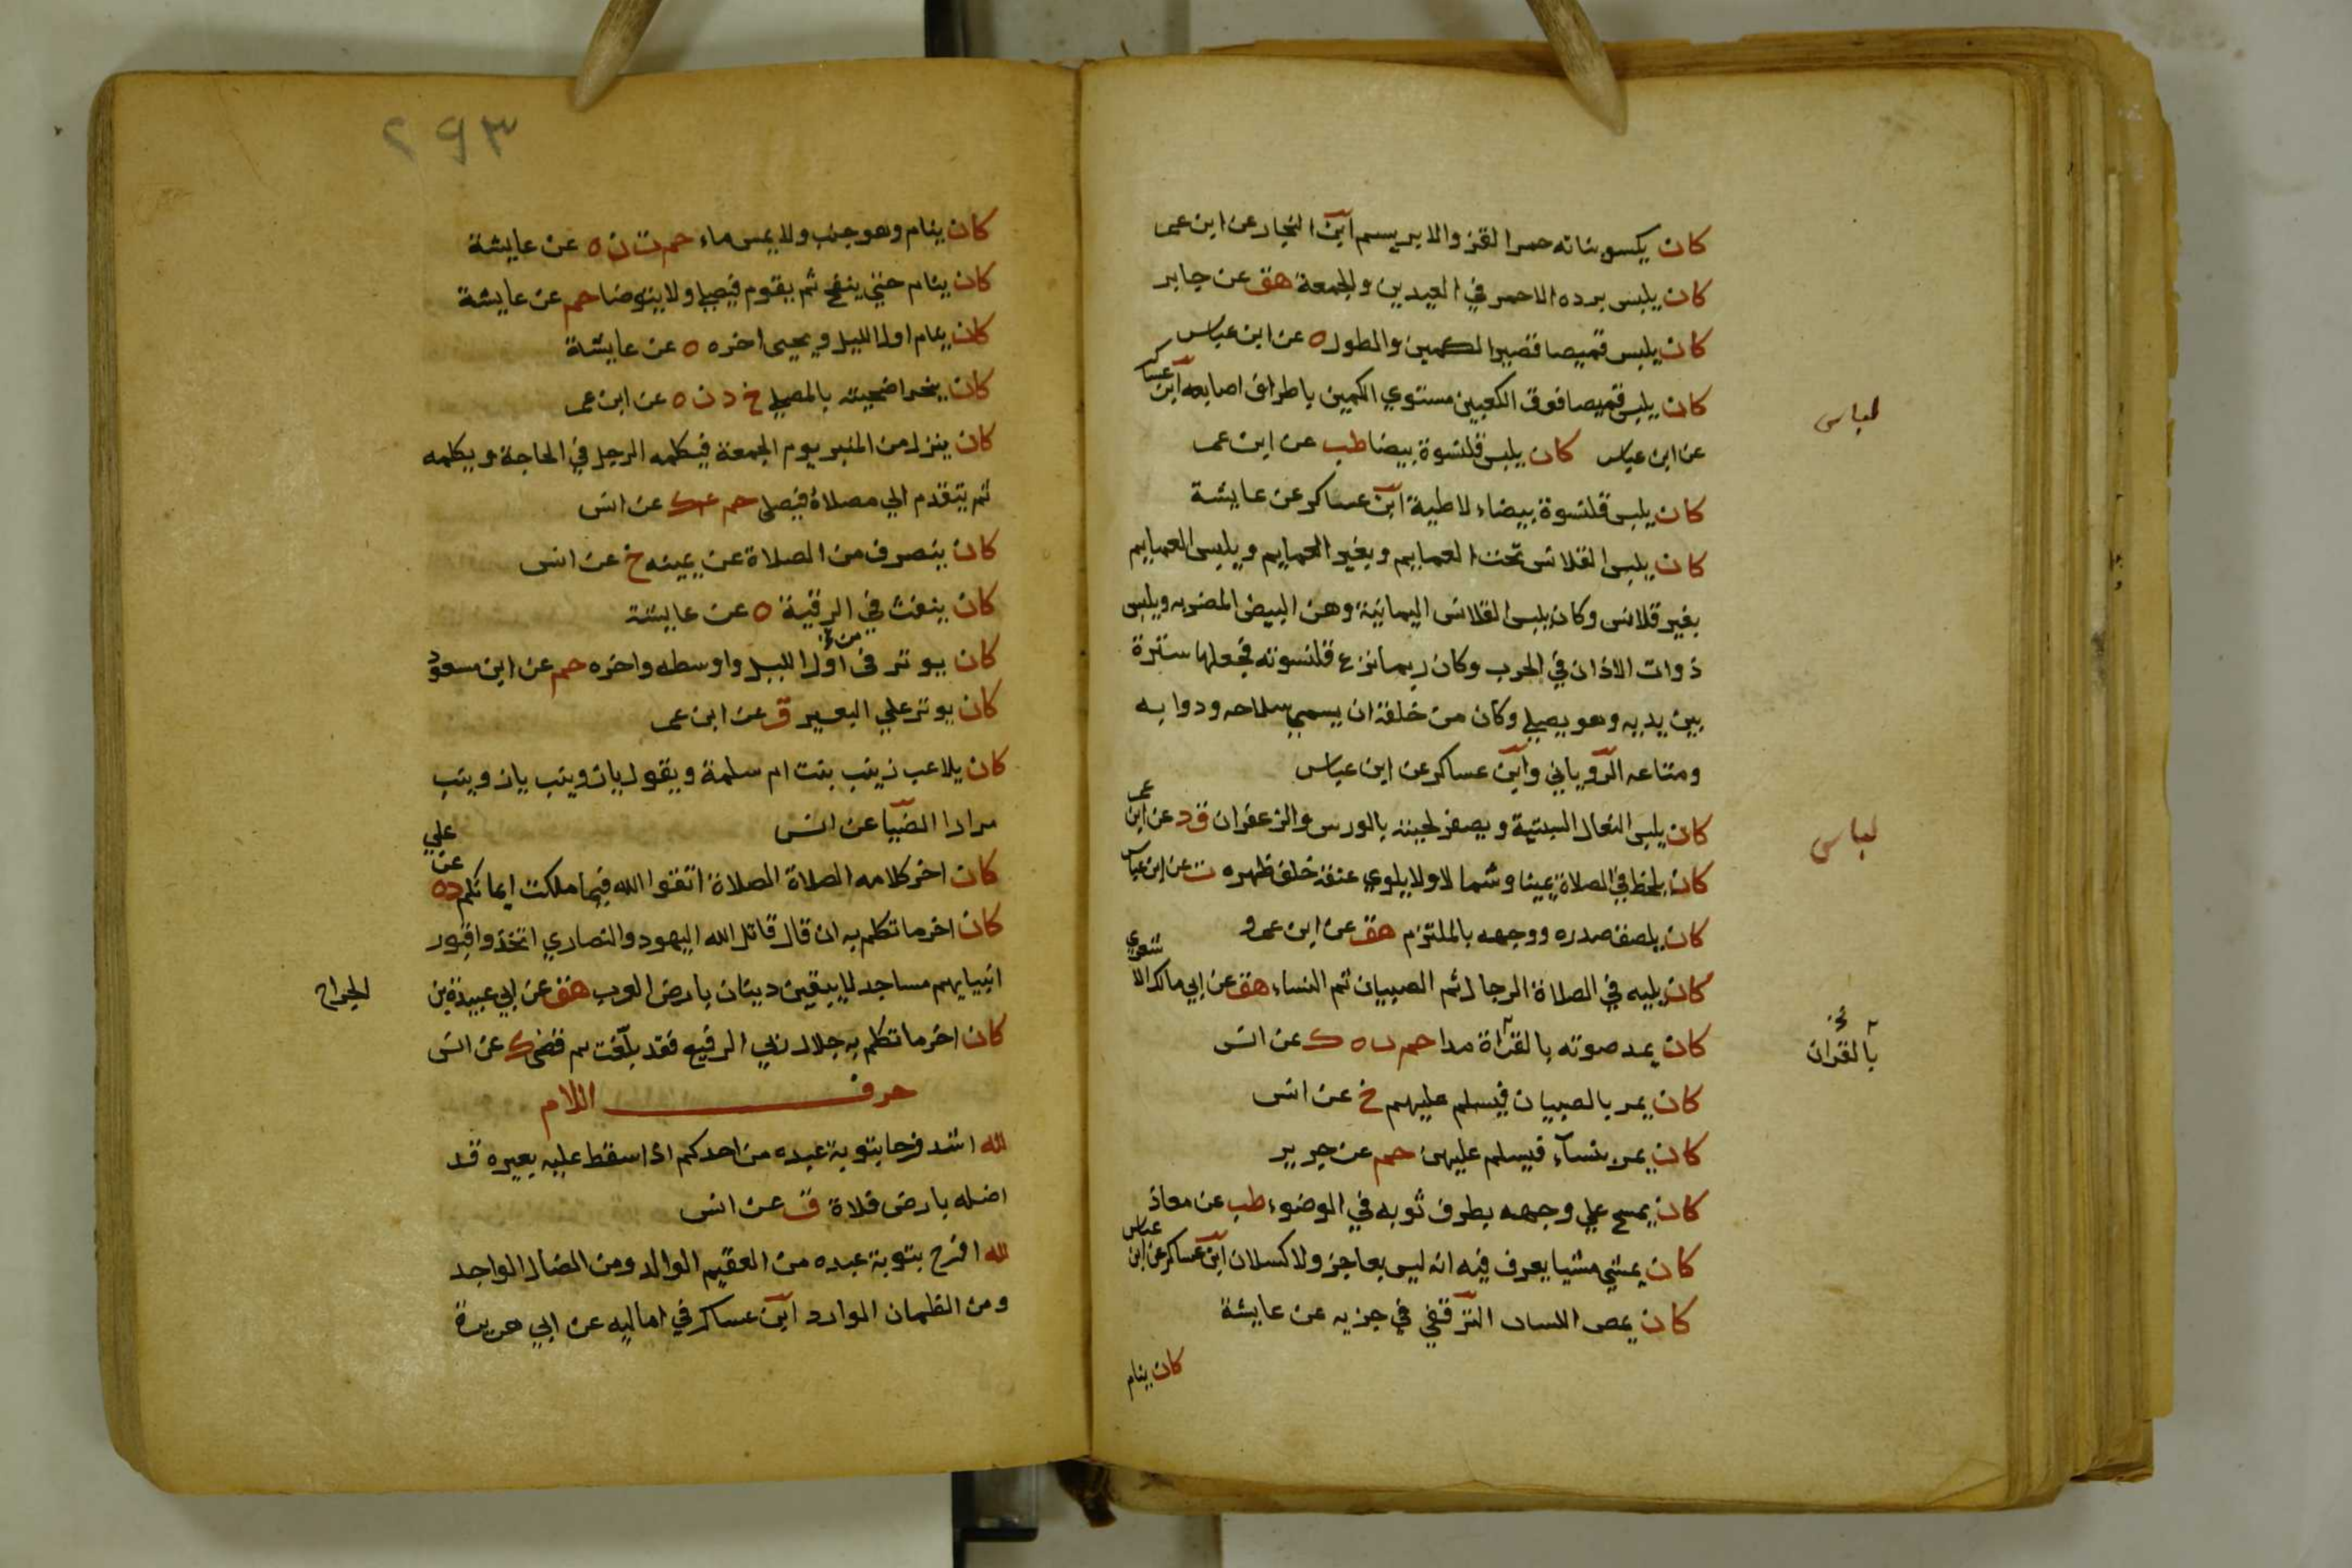 كان يكسو بناته حمر القز والابريسم ابن النجار عن ابن عمر
كان يلبس برده الاحمر في العيدين والجمعة هق عن جابر
كان يلبس قميصا قصير الكمين والطول ه عن ابن عباس
كان يلبس قميصا فوق الكعبين مستوي الكمين باطراف اصابعه ابن عساكر
لباس
عن ابن عباس كان يلبس قلنسوة بيضا طب عن ابن عمر
كان يلبس قلنسوة بيضاء لاطية ابن عساكر عن عايشة
كان يلبس القلانس تحت العمايم وبغير العمايم ويلبس العمايم
بغير قلانس وكان يلبس القلانس اليمانية وهن البيض المضربه ويلبس
ذوات الاذان في الحرب وكان ربما نزع قلنسوته فجعلها سترة
بين يديه وهو يصلي وكان من خلقه ان يسمي سلاحه ودوابه
ومتاعه الروياني وابن عساكر عن ابن عباس
كان يلبس النعال السبتية ويصفر لحيته بالورس والزعفران ق د عن ابن عمر
لباس
كان يلحظ في الصلاة يمينا وشمالا ولا يلوي عنقه خلف ظهره ت عن ابن عباس
كان يلصق صدره ووجهه بالملتزم هق عن ابن عمرو
كان يليه في الصلاة الرجال ثم الصبيان ثم النساء هق عن ابي مالك الاشعري
كان يمد صوته بالقراة مدا حم ن ه ك عن انس
بالقران
كان يمر بالصبيان فيسلم عليهم خ عن انس
كان يمر بنساء فيسلم عليهن حم عن جرير
كان يمسح علي وجهه بطرف ثوبه في الوضوء طب عن معاذ
كان يمشي مشيا يعرف فيه انه ليس بعاجز ولا كسلان ابن عساكر عن ابن عباس
كان يمص اللسان الترقفي في جزيه عن عايشة
كان ينام
٢٩٣
كان ينام وهو جنب ولا يمس ماء حم ت ن ه عن عايشة
كان ينام حتي ينفخ ثم يقوم فيصلي ولا يتوضا حم عن عايشة
كان ينام اول الليل ويحيى اخره ه عن عايشة
كان ينحر اضحيته بالمصلي خ د ن ه عن ابن عمر
كان ينزل من المنبر يوم الجمعة فيكلمه الرجل في الحاجة ويكلمه
ثم يتقدم الي مصلاه فيصلى حم ع ك عن انس
كان ينصرف من الصلاة عن يمينه خ عن انس
كان ينفث في الرقية ه عن عايشة
كان يوتر في اول الليل واوسطه واخره حم عن ابن مسعود
كان يوتر علي البعير ق عن ابن عمر
كان يلاعب زينب بنت ام سلمة ويقول يا زوينب يا زوينب
مرارا الضيا عن انس
كان اخر كلامه الصلاة الصلاة اتقوا الله فيما ملكت ايمانكم د ه عن علي
كان اخر ما تكلم به ان قال قاتل الله اليهود والنصاري اتخذوا قبور
انبيايهم مساجد لا يبقين دينان بارض العرب هق عن ابي عبيدة بن الجراح
كان اخر ما تكلم به جلال ربي الرفيع فقد بلغت ثم قضي ك عن انس
حرف اللام
لله اشد فرحا بتوبة عبده من احدكم اذا سقط عليه بعيره قد
اضله بارض فلاة ق عن انس
لله افرح بتوبة عبده من العقيم الوالد ومن الضال الواجد
ومن الظمان الوارد ابن عساكر في اماليه عن ابي هريرة